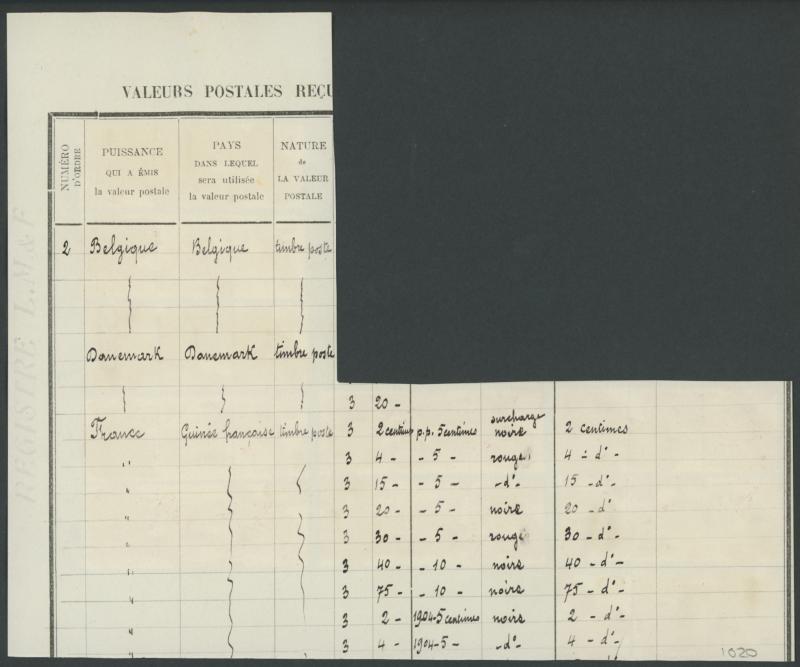 VALEURS POSTALES REÇU
NUMÉRO D'ORDRE
PUISSANCE QUI A ÉMIS la valeur postale
PAYS DANS LEQUEL sera utilisée la valeur postale
NATURE de LA VALEUR POSTALE
REGISTRE L.M&F
2 Belgique Belgique timbre poste
Danemark Danemark timbre poste
3 20 -
surcharge
France Guinée française timbre poste 3 2 centimes p.p. 5 centimes noire 2 centimes
" 3 4 - - 5 - rouge 4 - d° -
" 3 15 - - 5 - - d° - 15 - d° -
" 3 20 - - 5 - noire 20 - d° -
" 3 30 - - 5 - rouge 30 - d° -
" 3 40 - - 10 - noire 40 - d° -
" 3 75 - - 10 - noire 75 - d° -
" 3 2 - 1904-5 centimes noire 2 - d° -
" 3 4 - 1904-5 - - d° - 4 - d° -
1020